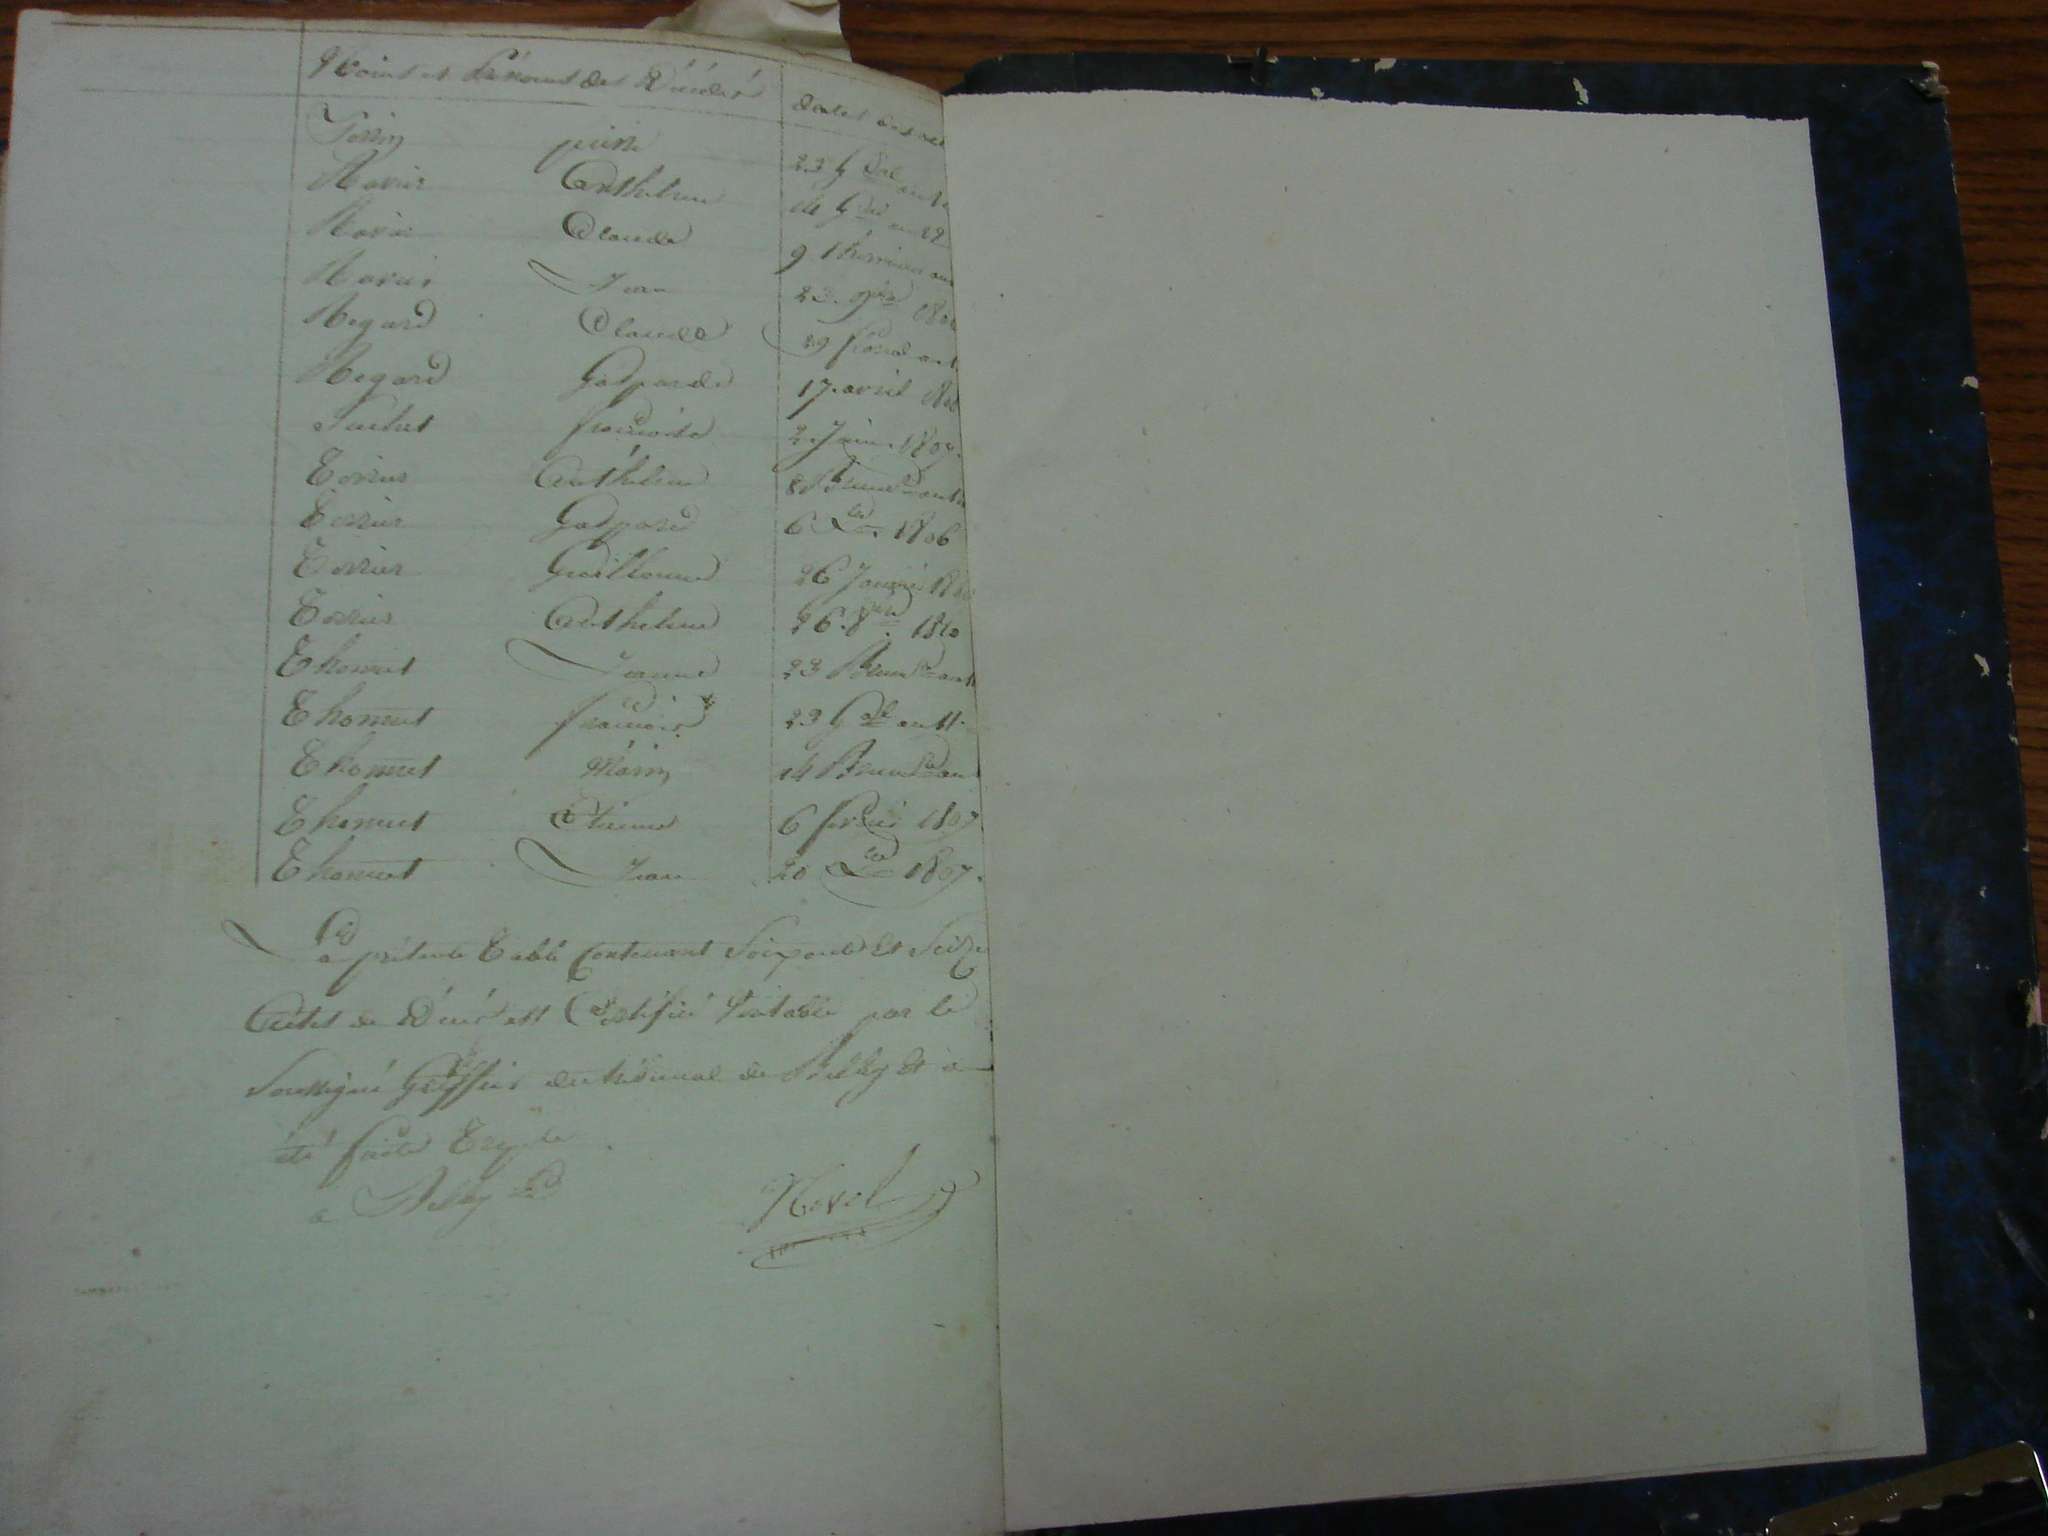 Noms et Prénoms des Décédés dates des
Perrin pierre 23 G.al an
Ravier Anthelme 14 G.al an 12
Ravier Claude 9 thermidor an
Ravier Jean 23. 9bre
Regard Claude 29 floréal an
Regard Gasparde 17. avril
françoise 2 Juin. 1807.
Terrier Anthelme 8 Brum.re an
Terrier Gaspard 6 1806
Terrier Guillaume 26 Janvier
Terrier Anthelme 26. 8bre 1810
Thomet Jeanne 23 Brum.re an
Thomet françois 23 G.al an 11.
Thomet Marin 14 Brum.re an
Thomet Etienne 6 fevrier 1807.
Thomet Jean 20 d.o 1807.
La présente Table Contenant Soixante et Seize
Actes de Décès est Certifié Véritable par le
Soussigné Greffier du tribunal de Belley et a
été faite Triple
a Belley